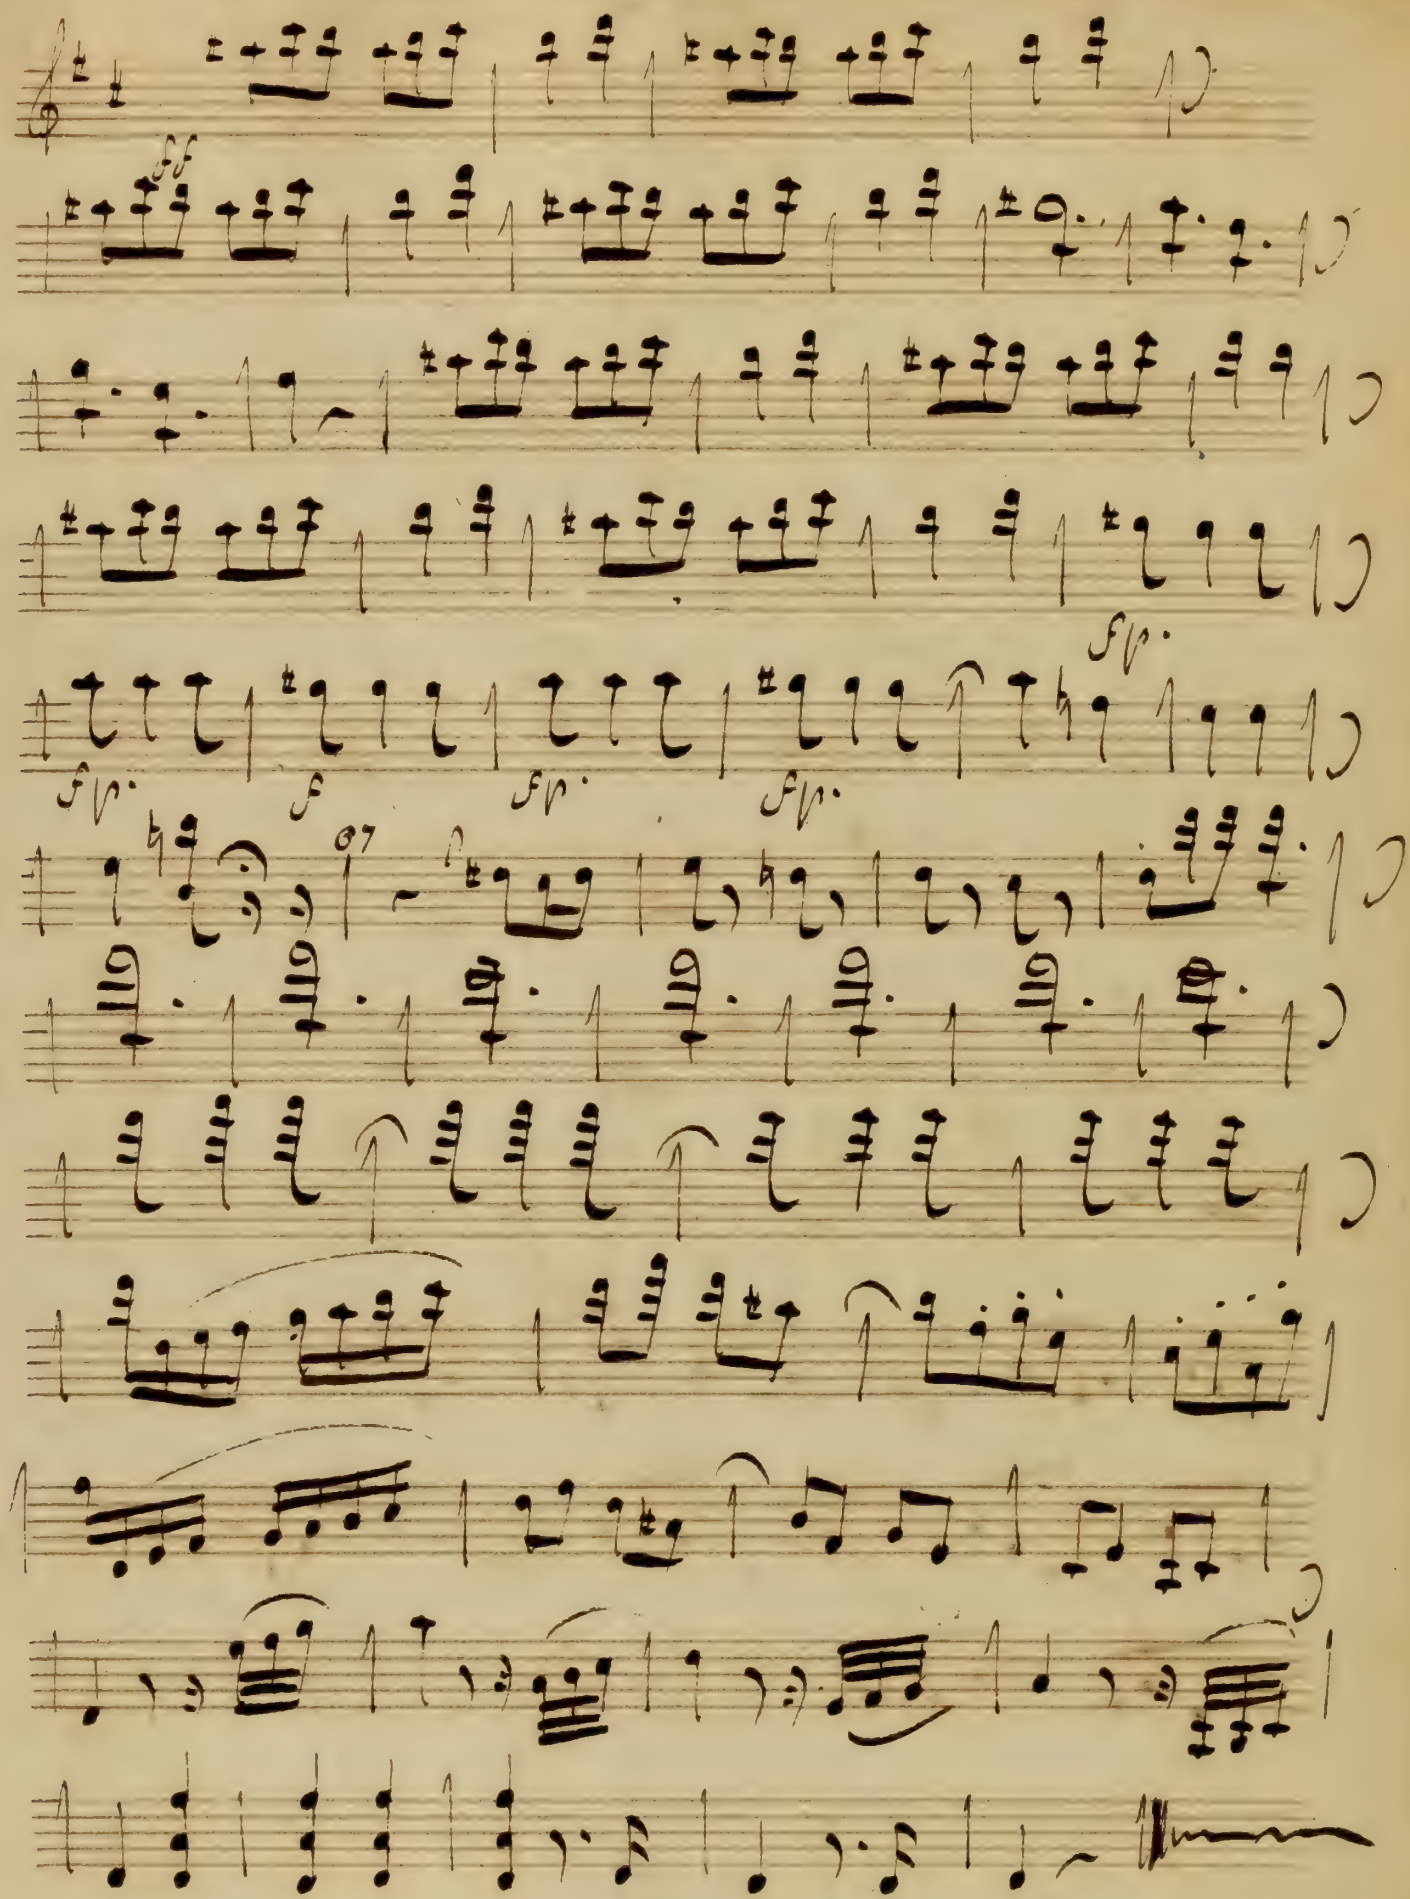 ff
fp.
fp. f fp. fp.
p